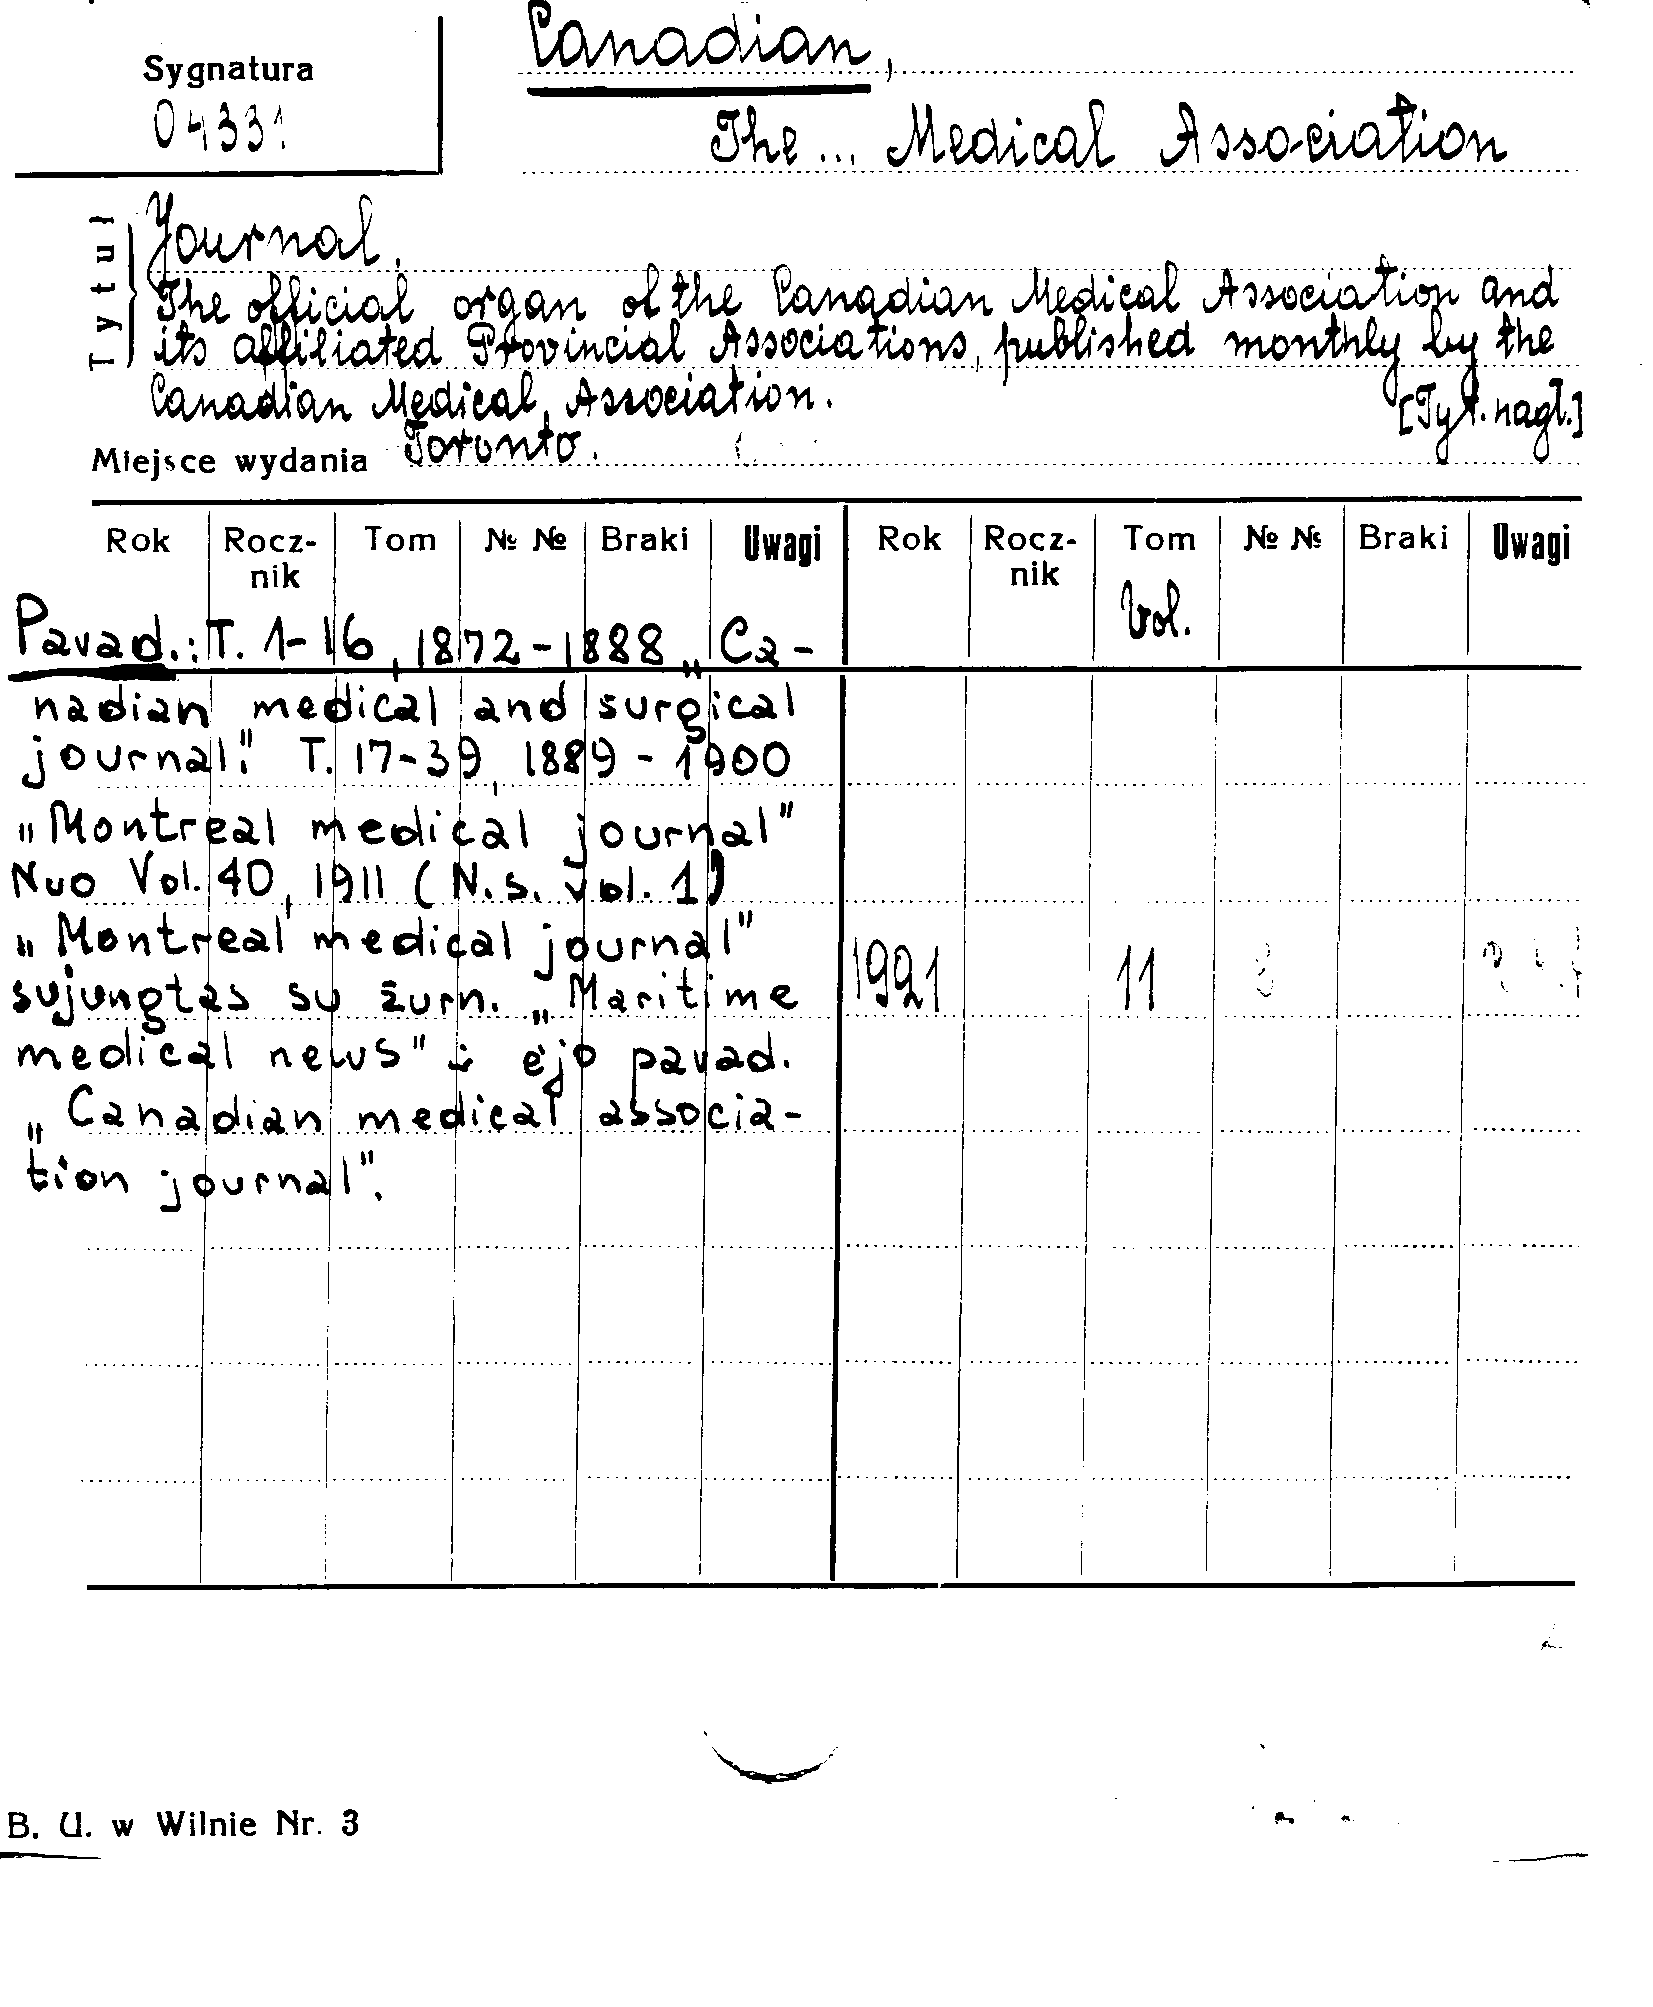 Sygnatura
04331
Canadian,
The ... Medical Association
Tytuł
Journal.
The official organ of the Canadian Medical Association and
its affiliated Provincial Associations, published monthly by the
Canadian Medical Association.
[Tyt. nagł.]
Miejsce wydania Toronto.
Rok Rocz-nik Tom № № Braki Uwagi Rok Rocz-nik Tom № № Braki Uwagi
Vol.
Pavad.: T. 1-16, 1872-1888 „Ca-
nadian medical and surgical
journal". T. 17-39, 1889-1900
„Montreal medical journal"
Nuo Vol. 40, 1911 (N.s. vol. 1)
„Montreal medical journal"
sujungtas su žurn. „Maritime
medical news" ir ėjo pavad.
„Canadian medical associa-
tion journal".
1921 11 3
B. U. w Wilnie Nr. 3